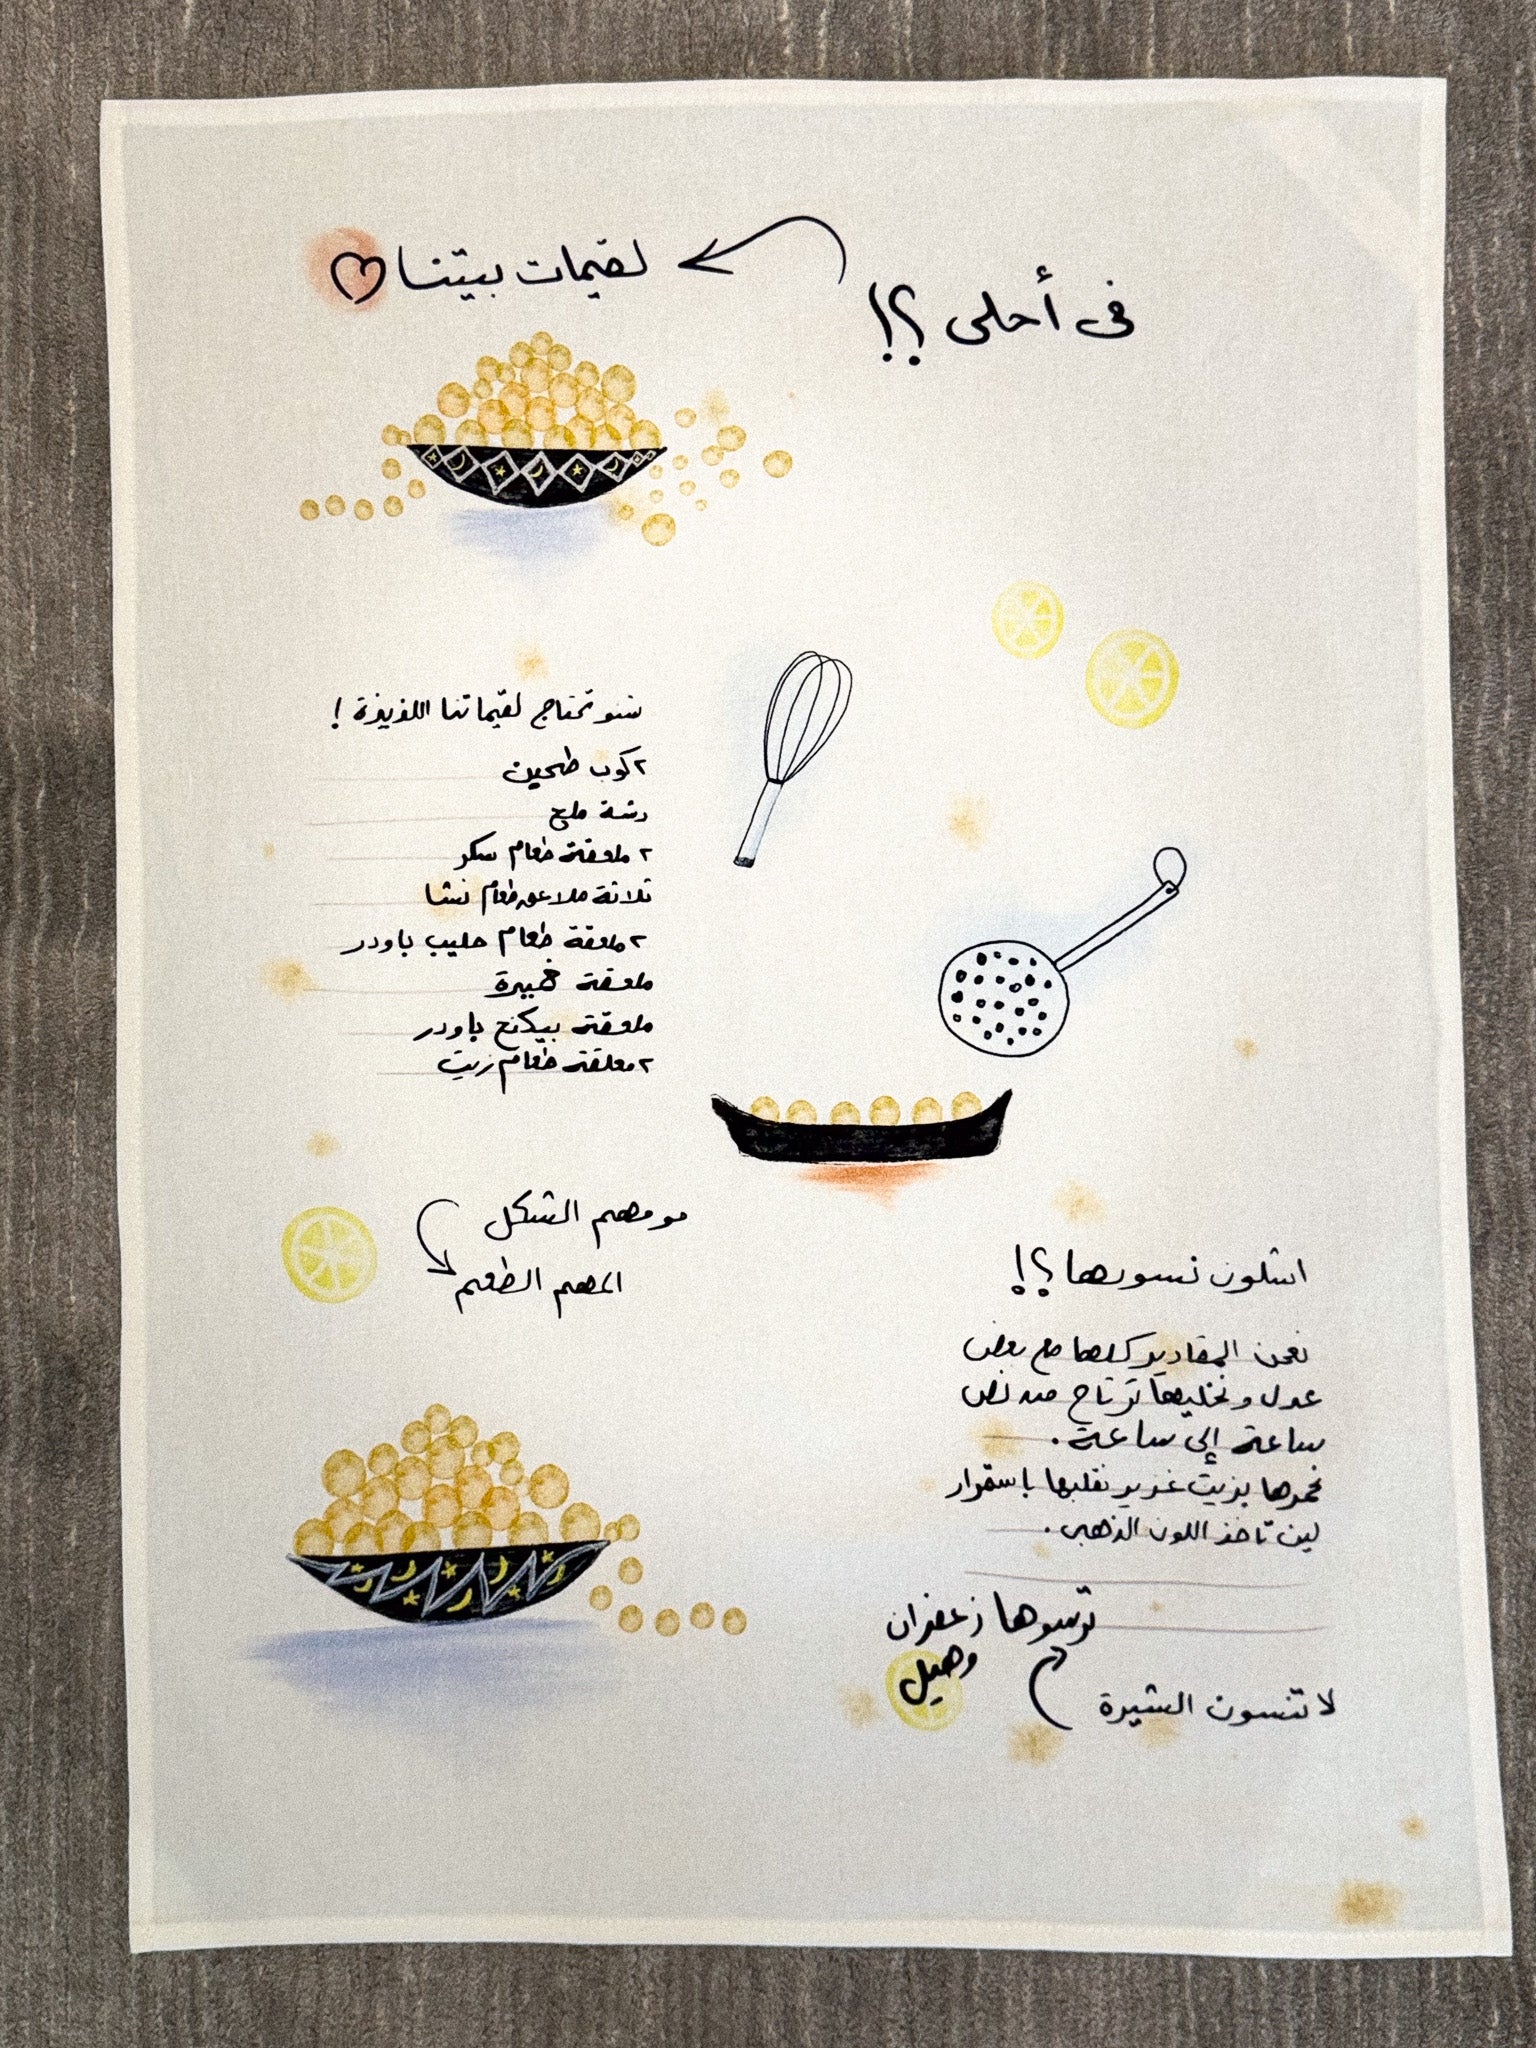 في أحلى ؟!
لقيمات بيتنا
شو تحتاج لقيماتنا اللذيذة !
٢ كوب طحين
رشة ملح
٢ ملعقة طعام سكر
ثلاثة ملاعق طعام نشا
٢ ملعقة طعام حليب باودر
ملعقة خميرة
ملعقة بيكنج باودر
٢ معلقة طعام زيت
مو مهم الشكل
المهم الطعم
اشلون نسويها ؟!
نعجن المقادير كلها مع بعض
عدل ونخليها ترتاح من نص
ساعة إلى ساعة .
نحمرها بزيت غزير نقلبها باستمرار
لين تاخذ اللون الذهبي .
لا تنسون الشيرة
ترسوها زعفران
وهيل